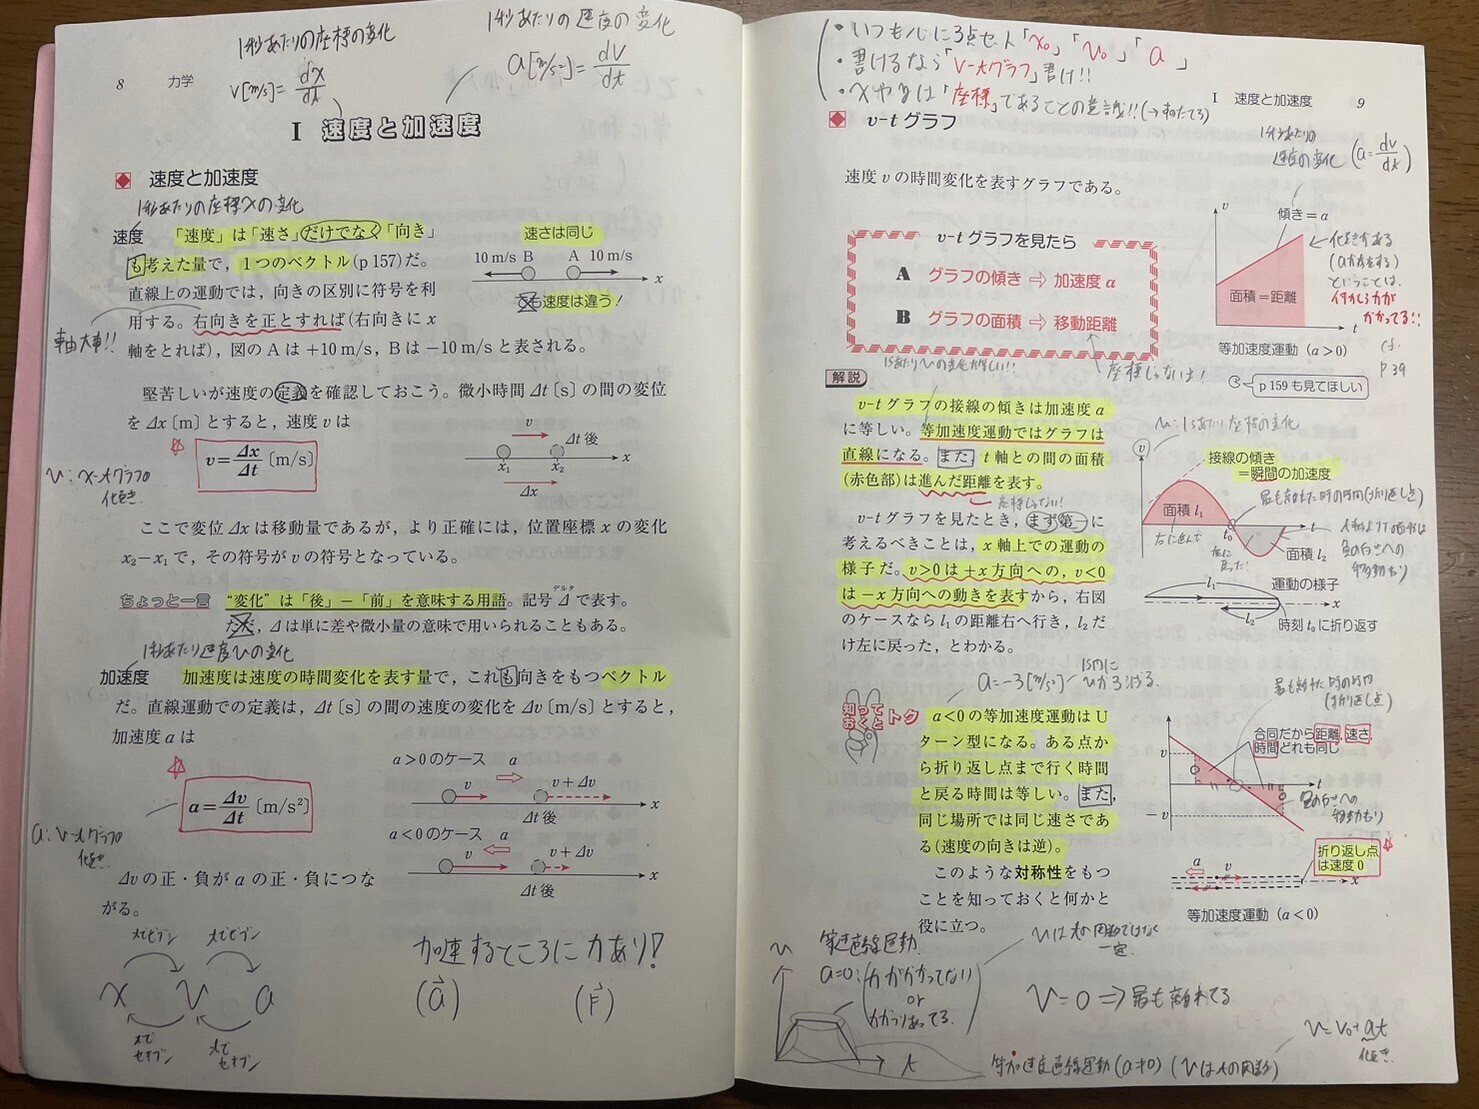 1秒あたりの座標の変化
v[m/s]=dx/dt
1秒あたりの速度の変化
a[m/s²]=dv/dt
8 力学
I 速度と加速度
速度と加速度
1秒あたりの座標xの変化
速度 「速度」は「速さ」だけでなく「向き」
も考えた量で，1つのベクトル(p 157)だ。
直線上の運動では，向きの区別に符号を利
用する。右向きを正とすれば(右向きに x
軸をとれば)，図の A は +10 m/s，B は −10 m/s と表される。
軸大事!!
速さは同じ
10 m/s B A 10 m/s
x
でも速度は違う！
堅苦しいが速度の定義を確認しておこう。微小時間 Δt〔s〕の間の変位
を Δx〔m〕とすると，速度 v は
v=Δx/Δt〔m/s〕
v Δt 後
x₁ x₂ x
Δx
v: x-tグラフの
傾き.
ここで変位 Δx は移動量であるが，より正確には，位置座標 x の変化
x₂−x₁ で，その符号が v の符号となっている。
ちょっと一言 “変化”は「後」−「前」を意味する用語。記号 Δ で表す。
デルタ
ただ，Δ は単に差や微小量の意味で用いられることもある。
1秒あたり速度vの変化
加速度 加速度は速度の時間変化を表す量で，これも向きをもつベクトル
だ。直線運動での定義は，Δt〔s〕の間の速度の変化を Δv〔m/s〕とすると，
加速度 a は
a=Δv/Δt〔m/s²〕
a: v-tグラフの
傾き.
a>0 のケース a
v v+Δv
Δt 後 x
a<0 のケース a
v v+Δv
Δt 後 x
Δv の正・負が a の正・負につな
がる。
tでビブン tでビブン
x v a
tで
セキブン
tで
セキブン
加速するところに力あり!
(a) (F)
・いつも心に3点セット「x₀」「v₀」「a」
・書けるなら「v-tグラフ」書け!!
・xやyは「座標」であることの意識!!
I 速度と加速度 9
v-t グラフ
速度 v の時間変化を表すグラフである。
1秒あたりの
速度の変化 (a=dv/dt)
v-t グラフを見たら
A グラフの傾き ⇨ 加速度 a
B グラフの面積 ⇨ 移動距離
座標じゃないよ!
v
傾き＝a
面積＝距離
t
等加速度運動 (a>0)
傾きがある
(aが存在する)
ということは,
何かしら力が
かかってる!!
cf.
P39
p 159 も見てほしい
解説
v-t グラフの接線の傾きは加速度 a
に等しい。等加速度運動ではグラフは
直線になる。また，t 軸との間の面積
(赤色部)は進んだ距離を表す。
座標じゃない!
v-t グラフを見たとき，まず第一に
考えるべきことは，x 軸上での運動の
様子だ。v>0 は +x 方向への，v<0
は −x 方向への動きを表すから，右図
のケースなら l₁ の距離右へ行き，l₂ だ
け左に戻った，とわかる。
v: 1sあたり座標の変化
v
接線の傾き
＝瞬間の加速度
最も離れた時の時間(折り返し点)
面積 l₁
右に進んで
t₀ t
面積 l₂
負の向きへの
移動あり
l₁ 運動の様子
x
l₂ 時刻 t₀ に折り返す
a=-3[m/s²]
1s間に
vが3減る.
知って
おくと
トク
a<0 の等加速度運動は U
ターン型になる。ある点か
ら折り返し点まで行く時間
と戻る時間は等しい。また，
同じ場所では同じ速さであ
る(速度の向きは逆)。
このような対称性をもつ
ことを知っておくと何かと
役に立つ。
最も離れた時の時間
(折り返し点)
v
合同だから距離，速さ，
時間どれも同じ
t
−v
負の向きへの
移動あり
折り返し点
は速度 0
a v
x
等加速度運動 (a<0)
等速直線運動
a=0: 力がかかってない
or
かかりあってる.
vはtの関数ではなく
一定
v
t
V=0 ⇒ 最も離れてる
v=v₀+at
傾き.
等加速度直線運動 (a≠0) (vはtの関数)